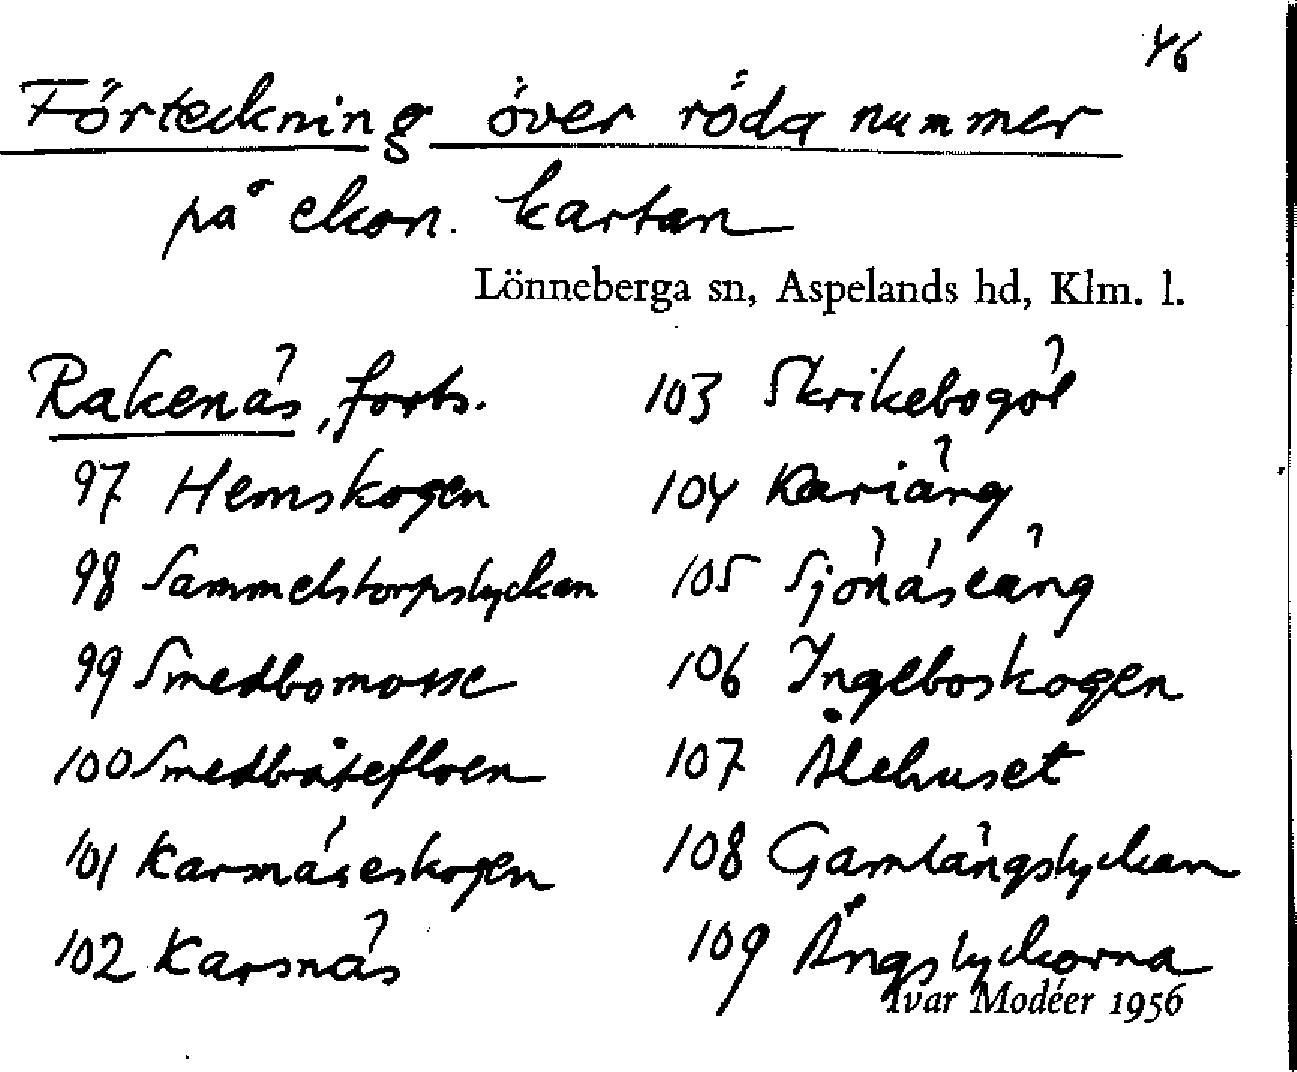 46
Förteckning över röda nummer
på ekon. kartan
Lönneberga sn, Aspelands hd, Klm. l.
Rakenäs, forts.
97 Hemskogen
98 Sammelstorpslyckan
99 Smedbomosse
100 Smedbråtefloen
101 Karsnäseskogen
102 Karsnäs
103 Skrikebogöl
104 Kariäng
105 Sjönäseäng
106 Ingeboskogen
107 Ålehuset
108 Gamlängslyckan
109 Ängslyckorna
Ivar Modéer 1956